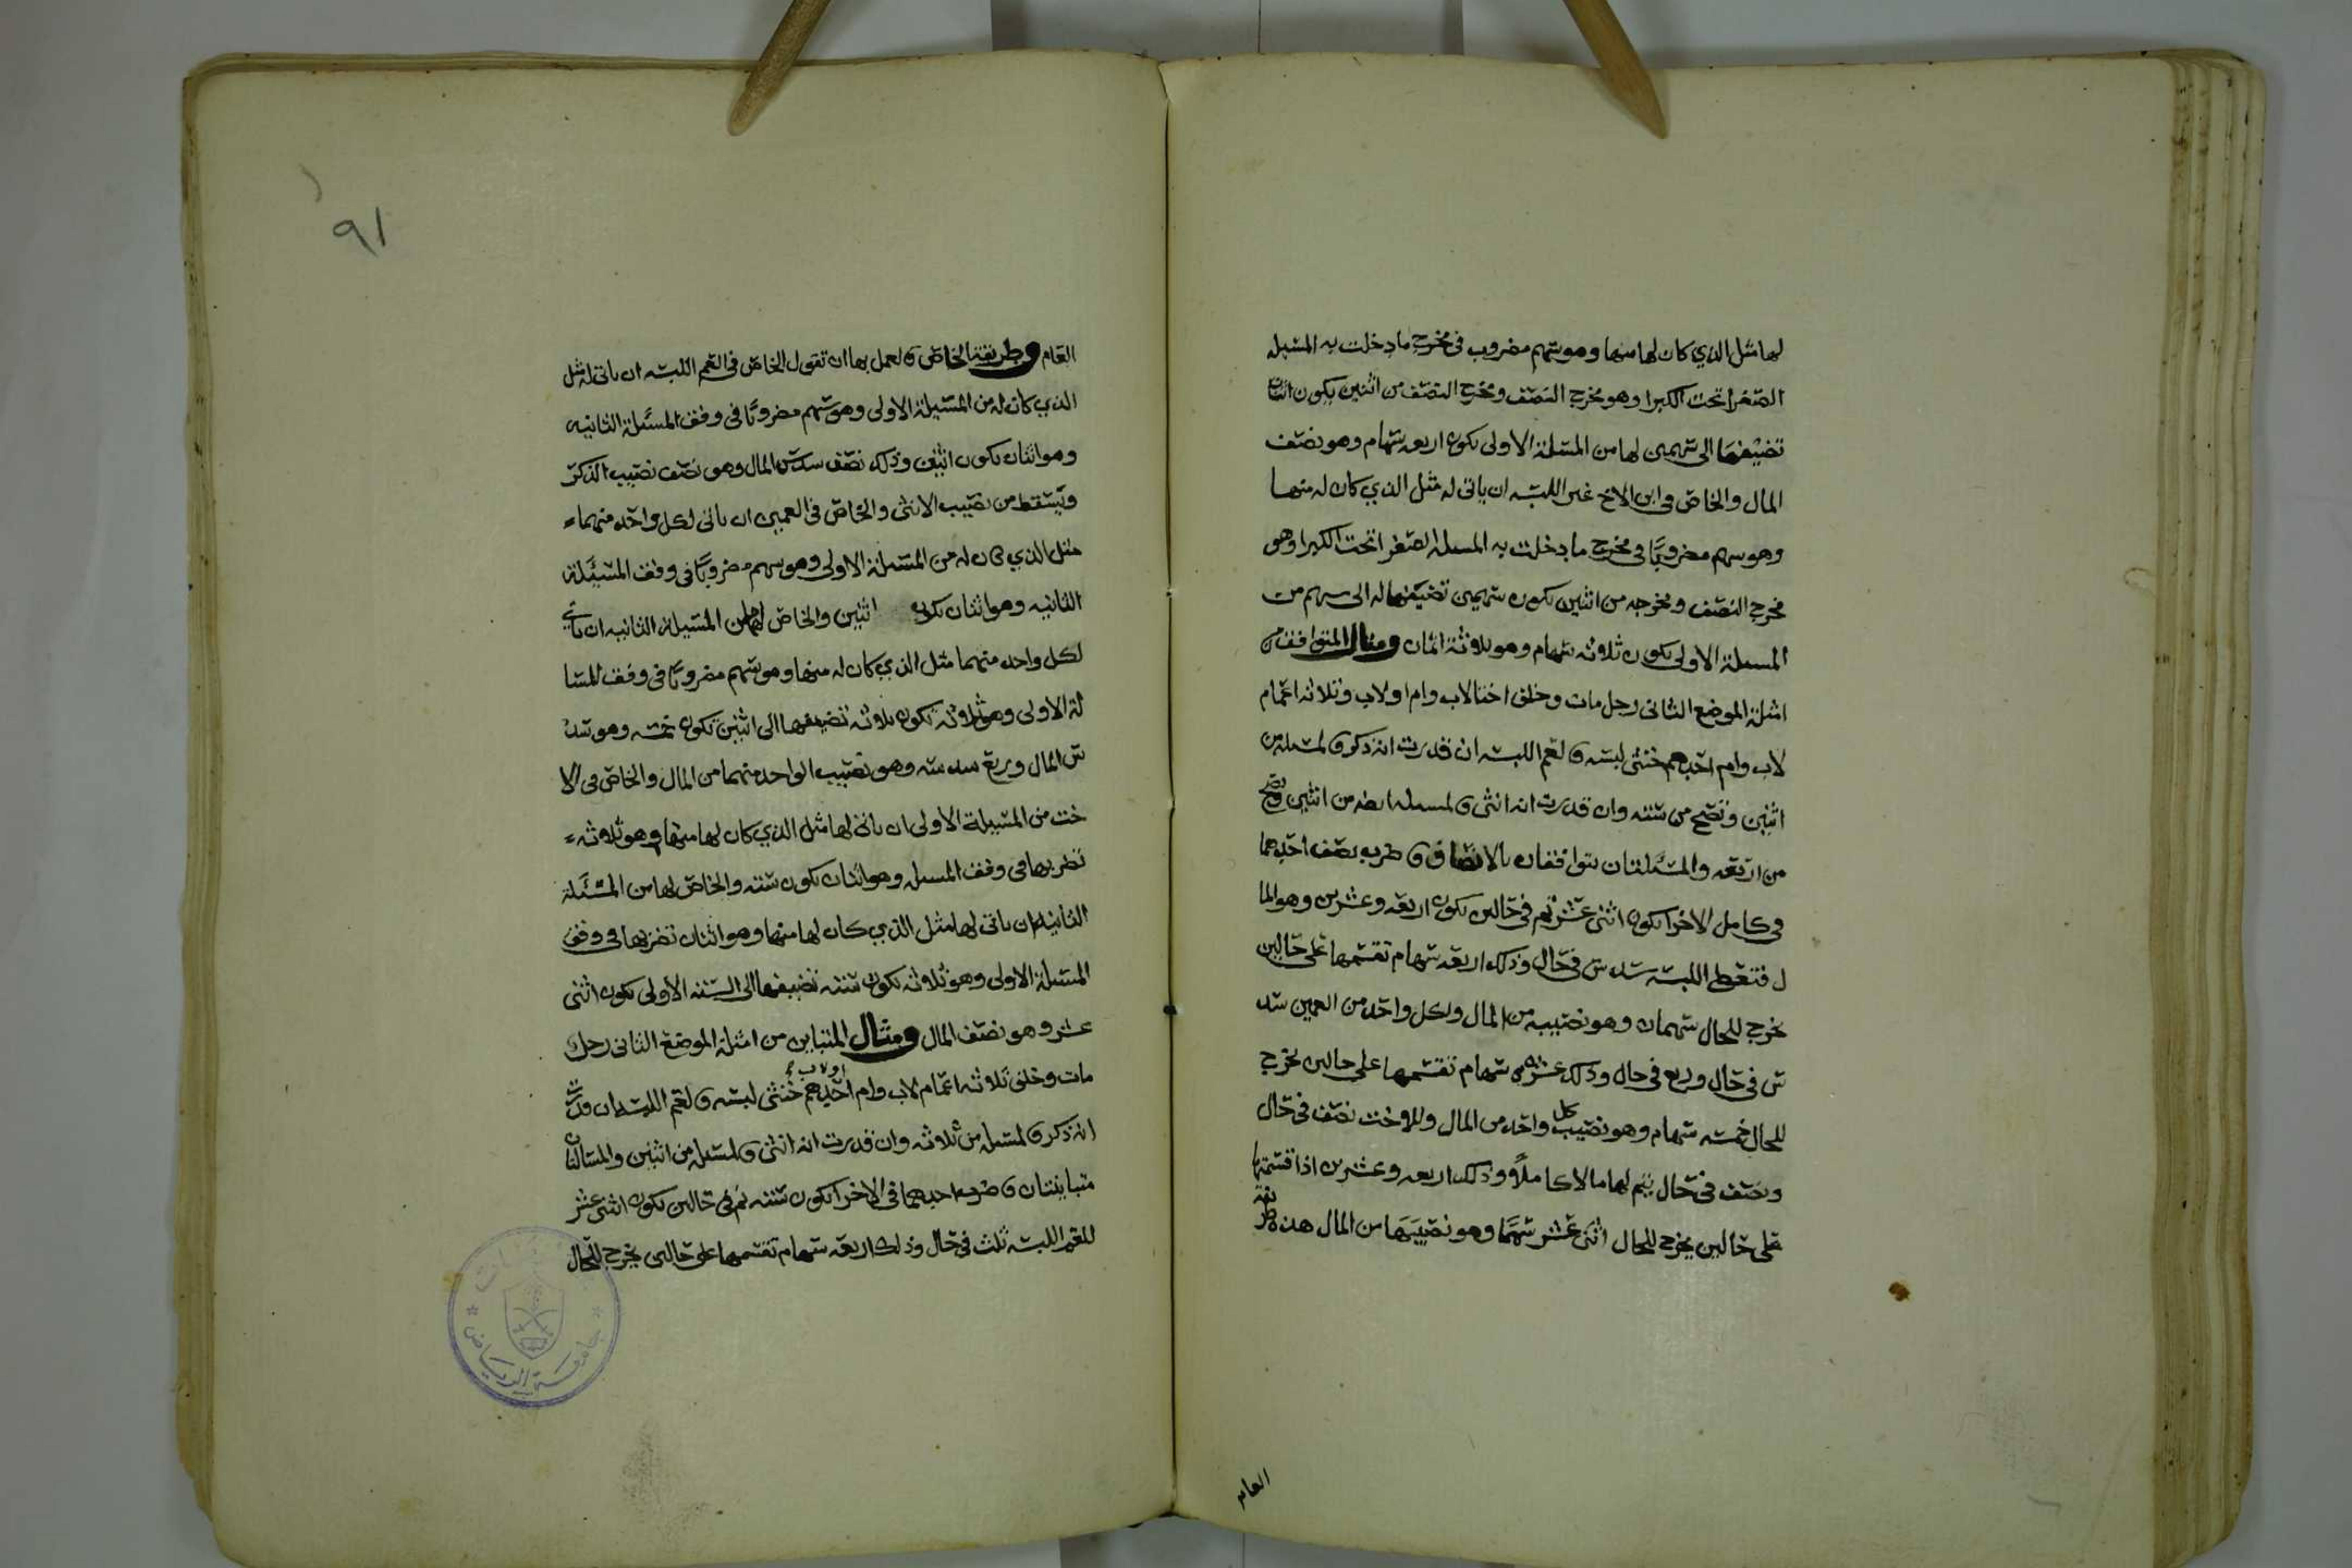 لها مثل الذي كان لها منها وهو سهم مضروب في مخرج ما دخلت به المسئلة
الصغرا تحت الكبرا وهو مخرج النصف ومخرج النصف من اثنين يكون اثنان
تضيفهما الى سهمين لها من المسئلة الاولى يكون اربعه سهام وهو نصف
المال والخاص في ابن الاخ غير اللبسه ان ياتي له مثل الذي كان له منها
وهو سهم مضروبًا في مخرج ما دخلت به المسله الصغرا تحت الكبرا وهو
مخرج النصف ومخرجه من اثنين يكون سهمين تضيفهما له الى سهم من
المسئلة الاولى يكون ثلاثه سهام وهو ثلاثة اثمان ومثال المتوافق من
امثلة الموضع الثاني رجل مات وخلف اختا لاب وام او لاب وثلاثه اعمام
لاب وام احدهم خنثى لبسه فالعم اللبسه ان قدرت انه ذكر فالمسله من
اثنين وتصح من سته وان قدرت انه انثى فالمسله ايضا من اثنين وتصح
من اربعه والمسئلتان يتوافقان بالانصاف فاضرب نصف احدهما
في كامل الاخرا يكون اثنى عشر ثم في حالين يكون اربعه وعشرين وهو الما
ل فتعطي اللبسه سدس في حال وذلك اربعه سهام تقسمها على حالين
يخرج للحال سهمان وهو نصيبه من المال ولكل واحد من العمين سد
س في حال وربع في حال وذلك عشره سهام تقسمها على حالين يخرج
للحال خمسه سهام وهو نصيب كل واحد من المال وللاخت نصف في حال
ونصف في حال يتم لها مالا كاملًا وذلك اربعه وعشرين اذا قسمتها
على حالين يخرج للحال اثنى عشر سهمًا وهو نصيبها من المال هذه طريقة
العام
٩١
العام وطريقة الخاص فالعمل بها ان تقول الخاص في العم اللبسه ان ياتي له مثل
الذي كان له من المسئلة الاولى وهو سهم مضروبًا في وفق المسئلة الثانيه
وهو اثنان يكون اثنين وذلك نصف سدس المال وهو نصف نصيب الذكر
ويسقط من نصيب الانثى والخاص في العمين ان ياتي لكل واحد منهما
مثل الذي كان له من المسئلة الاولى وهو سهم مضروبًا في وفق المسئلة
الثانيه وهو اثنان يكون اثنين والخاص لهما من المسئلة الثانيه ان ياتي
لكل واحد منهما مثل الذي كان له منها وهو سهم مضروبًا في وفق المسا
لة الاولى وهو ثلاثة يكون ثلاثه تضيفها الى اثنين تكون خمسه وهو سد
س المال وربع سدسه وهو نصيب الواحد منهما من المال والخاص في الا
خت من المسئلة الاولى ان ياتي لها مثل الذي كان لها منها وهو ثلاثه
تضربها في وفق المسله وهو اثنان يكون سته والخاص لها من المسئلة
الثانيه ان ياتي لها مثل الذي كان لها منها وهو اثنان تضربها في وفق
المسئلة الاولى وهو ثلاثه يكون سته تضيفها الى السته الاولى يكون اثنى
عشر وهو نصف المال ومثال المتباين من امثلة الموضع الثاني رجل
مات وخلف ثلاثه اعمام لاب وام او لاب احدهم خنثى لبسه فالعم اللبسه ان قدرت
انه ذكر فالمسله من ثلاثه وان قدرت انه انثى فالمسله من اثنين والمسالتان
متباينتان فاضرب احدهما في الاخرا يكون سته ثم في حالين يكون اثنى عشر
للعم اللبسه ثلث في حال وذلك اربعه سهام تقسمها على حالين يخرج للحال
جامعة الرياض